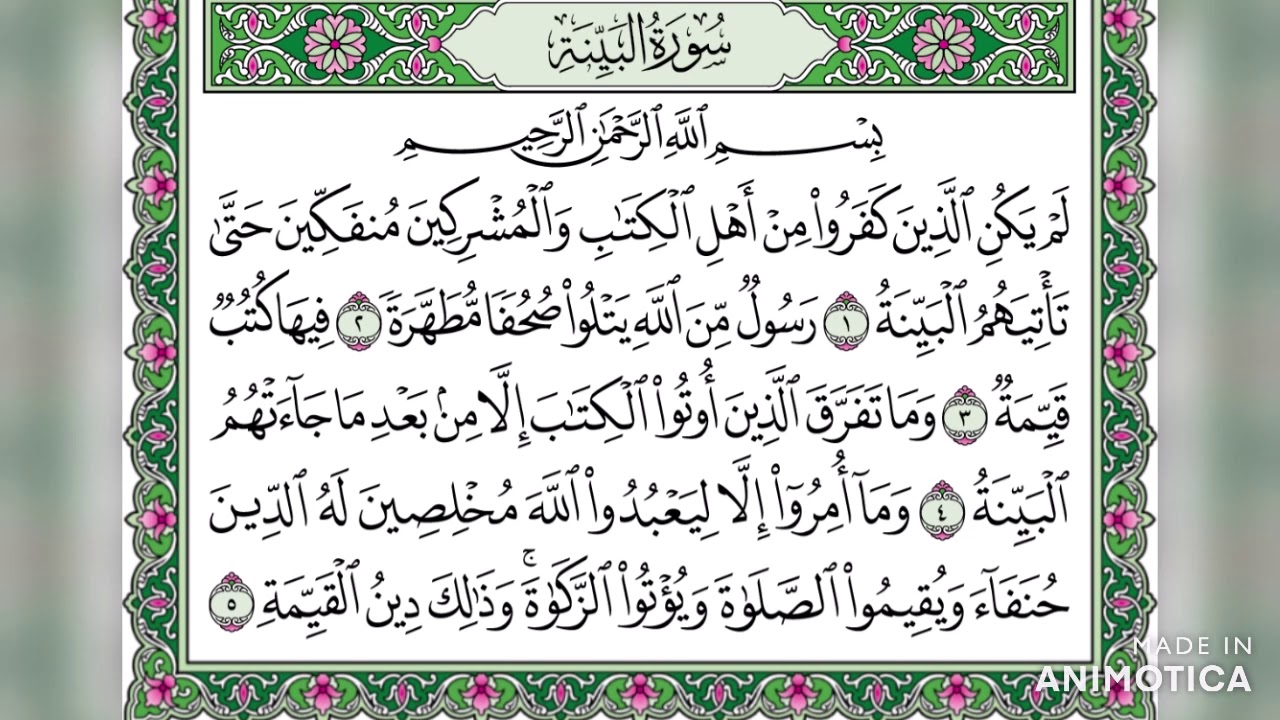 سُورَةُ الْبَيِّنَةِ
بِسْمِ ٱللَّهِ ٱلرَّحْمَٰنِ ٱلرَّحِيمِ
لَمْ يَكُنِ ٱلَّذِينَ كَفَرُوا۟ مِنْ أَهْلِ ٱلْكِتَٰبِ وَٱلْمُشْرِكِينَ مُنفَكِّينَ حَتَّىٰ
تَأْتِيَهُمُ ٱلْبَيِّنَةُ ١ رَسُولٌ مِّنَ ٱللَّهِ يَتْلُوا۟ صُحُفًا مُّطَهَّرَةً ٢ فِيهَا كُتُبٌ
قَيِّمَةٌ ٣ وَمَا تَفَرَّقَ ٱلَّذِينَ أُوتُوا۟ ٱلْكِتَٰبَ إِلَّا مِنۢ بَعْدِ مَا جَآءَتْهُمُ
ٱلْبَيِّنَةُ ٤ وَمَآ أُمِرُوٓا۟ إِلَّا لِيَعْبُدُوا۟ ٱللَّهَ مُخْلِصِينَ لَهُ ٱلدِّينَ
حُنَفَآءَ وَيُقِيمُوا۟ ٱلصَّلَوٰةَ وَيُؤْتُوا۟ ٱلزَّكَوٰةَ ۚ وَذَٰلِكَ دِينُ ٱلْقَيِّمَةِ ٥
MADE IN
ANIMOTICA